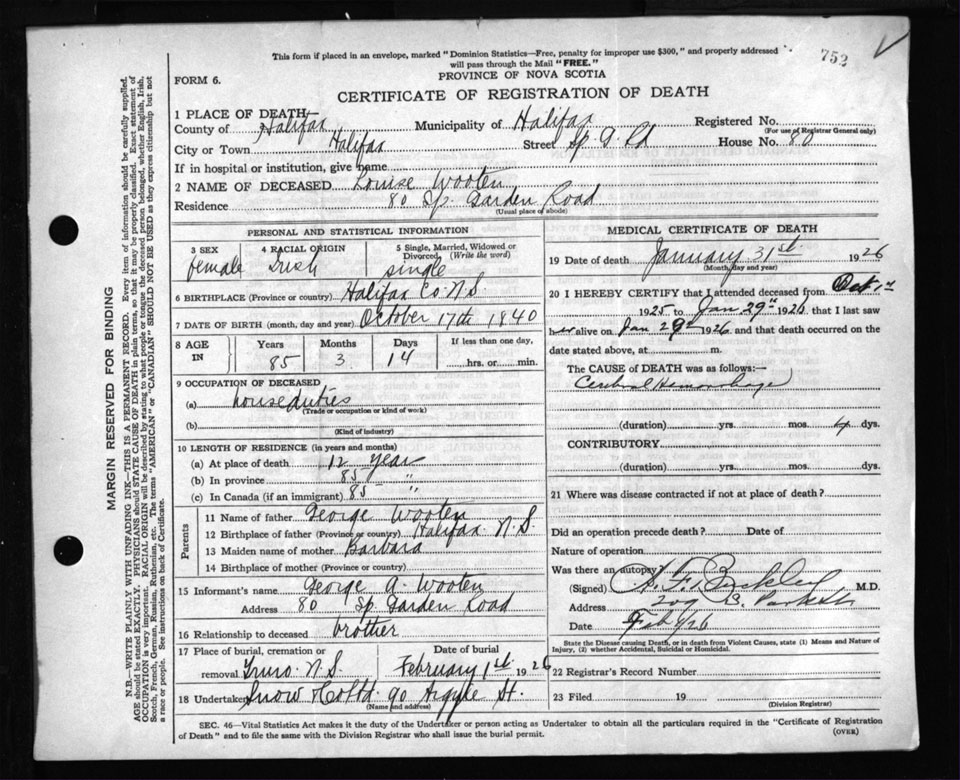 This form if placed in an envelope, marked "Dominion Statistics—Free, penalty for improper use $300," and properly addressed
will pass through the Mail "FREE."
752
PROVINCE OF NOVA SCOTIA
FORM 6.
CERTIFICATE OF REGISTRATION OF DEATH
1 PLACE OF DEATH
County of Halifax Municipality of Halifax Registered No.
(For use of Registrar General only)
City or Town Halifax Street Sp. G. Rd House No. 80
If in hospital or institution, give name
2 NAME OF DECEASED Louise Wooten
Residence 80 Sp. Garden Road
(Usual place of abode)
PERSONAL AND STATISTICAL INFORMATION
3 SEX 4 RACIAL ORIGIN 5 Single, Married, Widowed or Divorced (Write the word)
female Irish single
6 BIRTHPLACE (Province or country) Halifax Co. N.S.
7 DATE OF BIRTH (month, day and year) October 17th 1840
8 AGE IN Years Months Days If less than one day,
85 3 14 hrs. or min.
9 OCCUPATION OF DECEASED
(a) house duties
(Trade or occupation or kind of work)
(b)
(Kind of industry)
10 LENGTH OF RESIDENCE (in years and months)
(a) At place of death 12 year
(b) In province 85 "
(c) In Canada (if an immigrant) 85 "
Parents
11 Name of father George Wooten
12 Birthplace of father (Province or country) Halifax N.S.
13 Maiden name of mother Barbara
14 Birthplace of mother (Province or country)
15 Informant's name George A. Wooten
Address 80 Sp. Garden Road
16 Relationship to deceased brother
17 Place of burial, cremation or Date of burial
removal Truro N.S. February 1st 1926
18 Undertaker Snow & Co Ltd 90 Argyle St.
(Name and address)
MEDICAL CERTIFICATE OF DEATH
19 Date of death January 31st 1926
(Month, day and year)
20 I HEREBY CERTIFY that I attended deceased from Oct 1st
1925 to Jan 29th 1926 that I last saw
her alive on Jan 29th 1926 and that death occurred on the
date stated above, at m.
The CAUSE of DEATH was as follows:—
Cerebral Hemorrhage
(duration) yrs. mos. 4 dys.
CONTRIBUTORY
(duration) yrs. mos. dys.
21 Where was disease contracted if not at place of death?
Did an operation precede death? Date of
Nature of operation
Was there an autopsy
(Signed) Buckley M.D.
Address
Date Feb 1/26
State the Disease causing Death, or in death from Violent Causes, state (1) Means and Nature of
Injury, (2) whether Accidental, Suicidal or Homicidal.
22 Registrar's Record Number
23 Filed 19
(Division Registrar)
SEC. 46—Vital Statistics Act makes it the duty of the Undertaker or person acting as Undertaker to obtain all the particulars required in the "Certificate of Registration
of Death" and to file the same with the Division Registrar who shall issue the burial permit. (OVER)
MARGIN RESERVED FOR BINDING
N.B.—WRITE PLAINLY WITH UNFADING INK—THIS IS A PERMANENT RECORD. Every item of information should be carefully supplied.
AGE should be stated EXACTLY. PHYSICIANS should STATE CAUSE OF DEATH in plain terms, so that it may be properly classified. Exact statement of
OCCUPATION is very important. RACIAL ORIGIN will be described by stating to what people or tongue the deceased person belonged, whether English, Irish,
Scotch, French, German, Russian, Ruthenian, etc. The terms "AMERICAN" or "CANADIAN" SHOULD NOT BE USED as they express citizenship but not
a race or people. See instructions on back of Certificate.